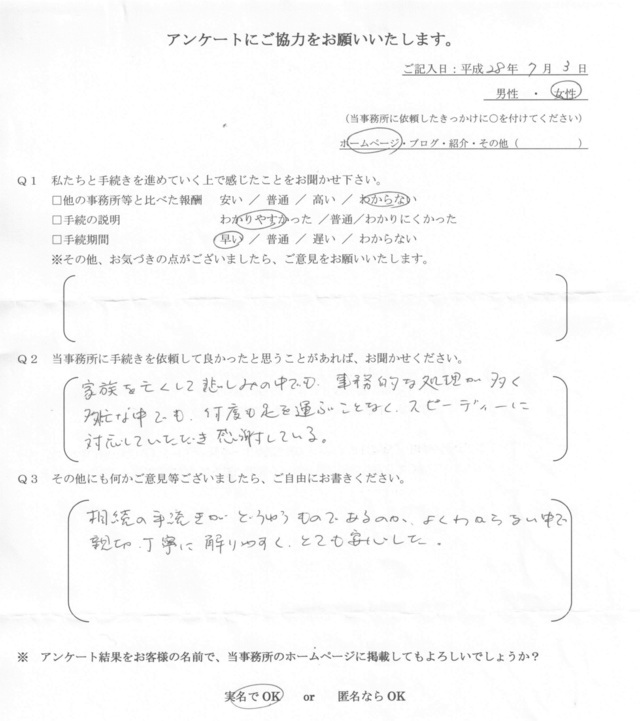 アンケートにご協力をお願いいたします。
ご記入日：平成28年 7月 3日
男性 ・ 女性
（当事務所に依頼したきっかけに○を付けてください）
ホームページ・ブログ・紹介・その他（　　　　）
Q1 私たちと手続きを進めていく上で感じたことをお聞かせ下さい。
□他の事務所等と比べた報酬 安い ／ 普通 ／ 高い ／ わからない
□手続の説明 わかりやすかった ／普通／わかりにくかった
□手続期間 早い ／ 普通 ／ 遅い ／ わからない
※その他、お気づきの点がございましたら、ご意見をお願いいたします。
Q2 当事務所に手続きを依頼して良かったと思うことがあれば、お聞かせください。
家族を亡くして悲しみの中でも、事務的な処理が多く
多忙な中でも、何度も足を運ぶことなく、スピーディーに
対応していただき感謝している。
Q3 その他にも何かご意見等ございましたら、ご自由にお書きください。
相続の手続きがどうゆうものであるのか、よくわからない中で
親切、丁寧に解りやすく、とても安心した。
※ アンケート結果をお客様の名前で、当事務所のホームページに掲載してもよろしいでしょうか？
実名でOK or 匿名ならOK